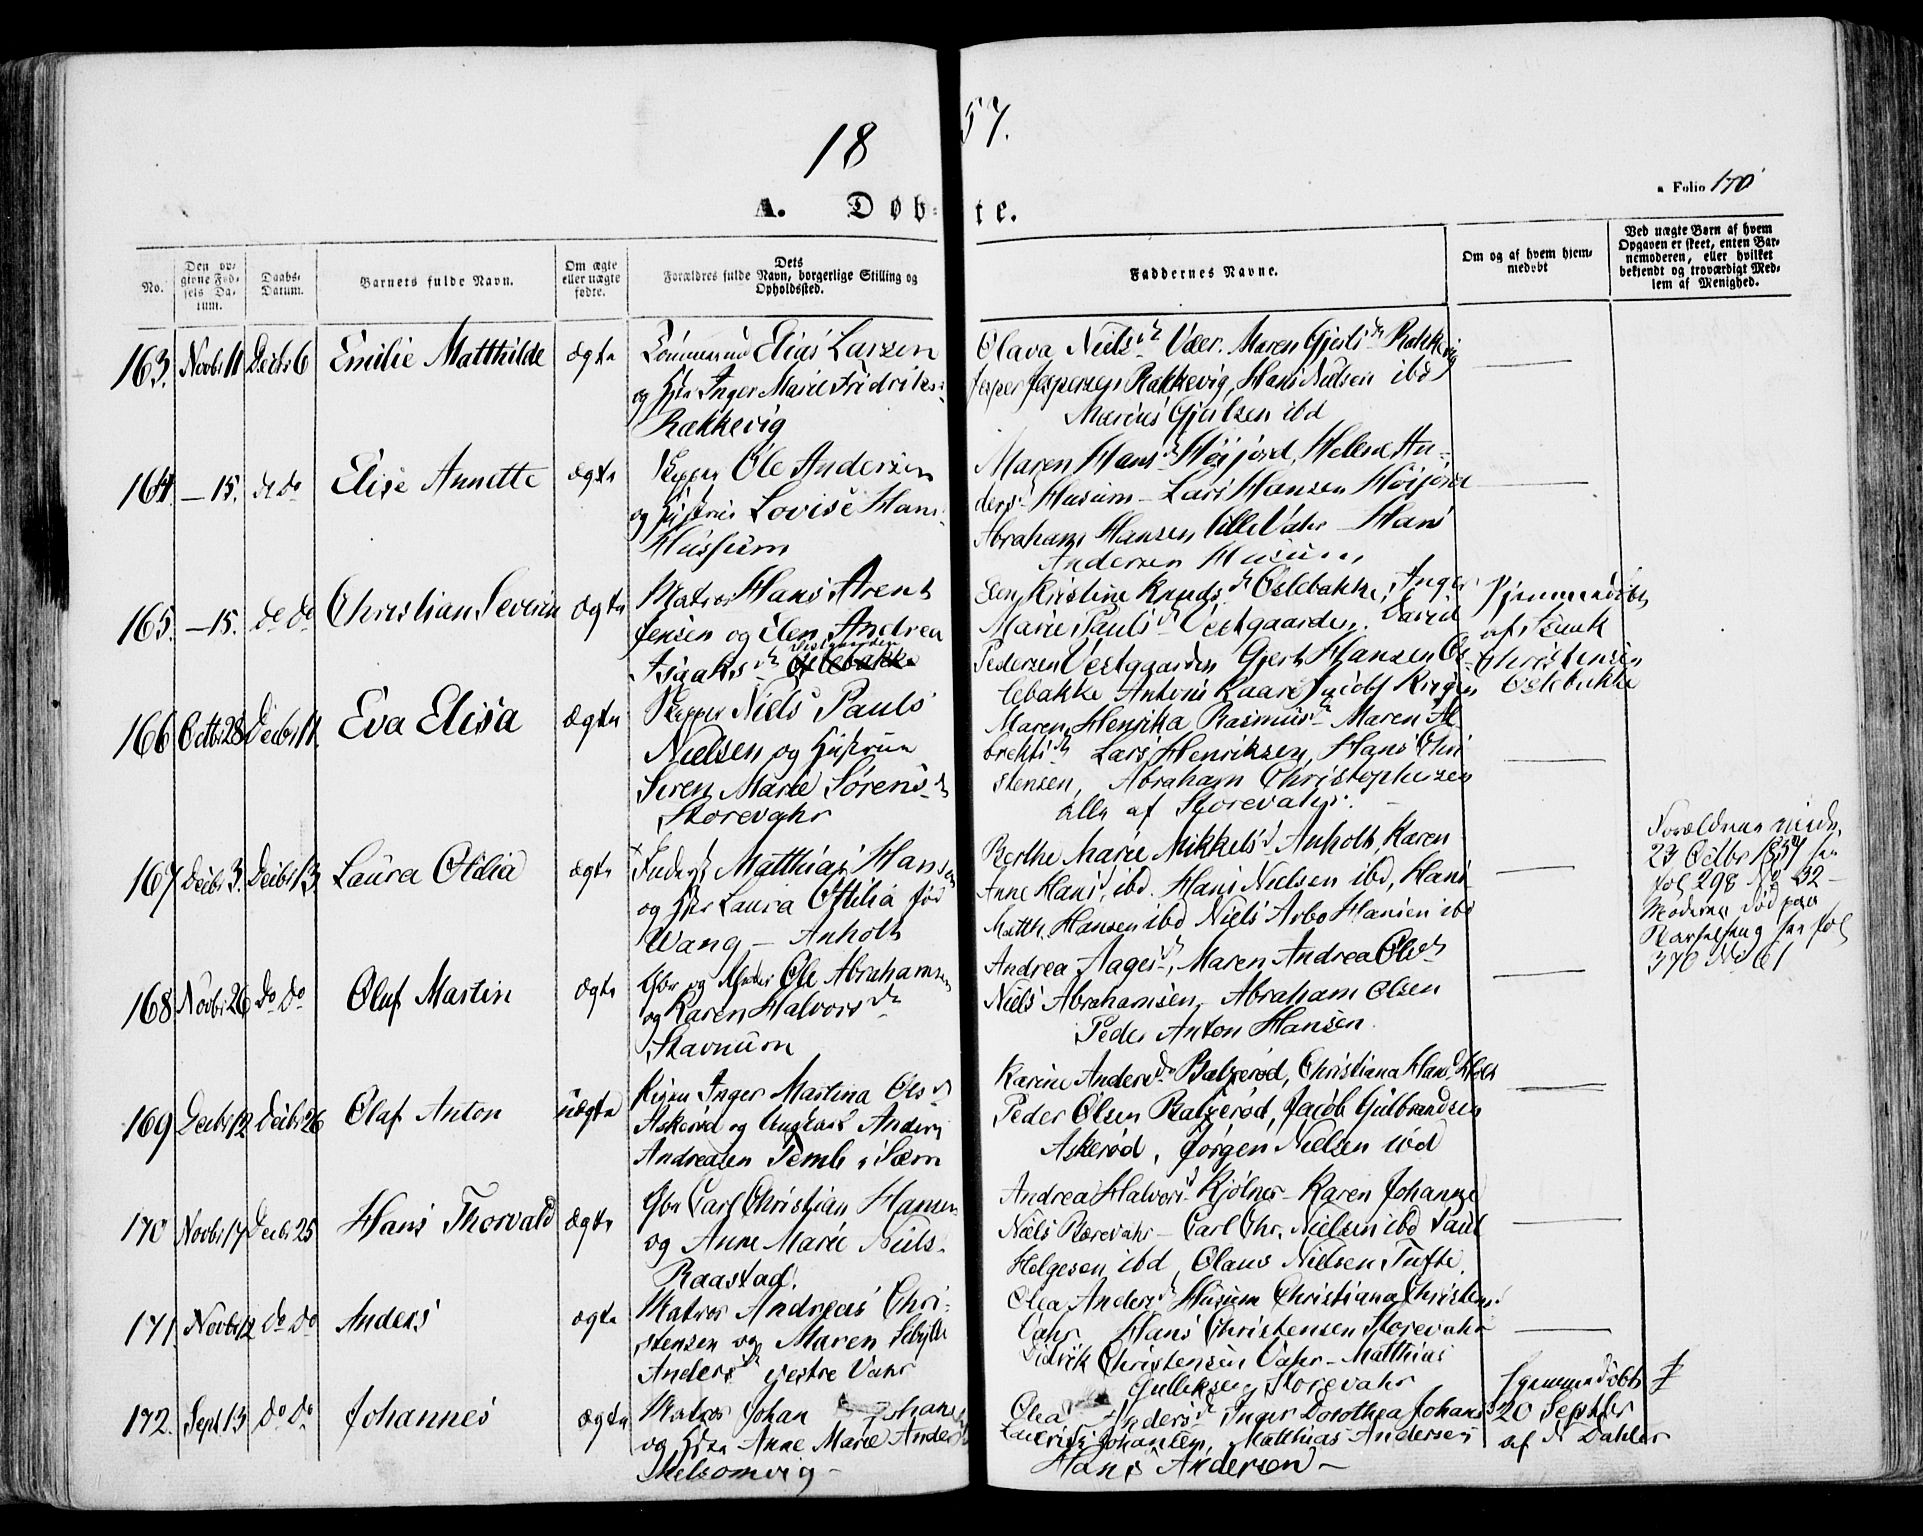 1857.
Folio 170
A. Døbte.
No.
Den opgivne Fødsels Datum.
Daabs-Datum.
Barnets fulde Navn.
Om ægte eller uægte fødte.
Dets Forældres fulde Navn, borgerlige Stilling og Opholdssted.
Faddernes Navne.
Om og af hvem hjemmedøbt
Ved uægte Børn af hvem Opgaven er skeet, enten Barnemoderen, eller hvilket bekjendt og troværdigt Medlem af Menighed.
163. Novbr 11 Decbr 6 Emilie Matthilde ægte
Elias Larsen
og Inger Marie Fridriks-
Rækkevig
Olava Niels Vaer. Maren Gjerts Rækkevig
Jesper Jespersen Rakkevig, Hans Nielsen ibd
Marius Gjertsen ibd
164. -15. do do Elise Annette ægte
Skipper Ole Andersen
og Hustrue Lovise Hans
Hussum
Maren Hans Høijord, Helene An-
ders Husum - Lars Hansen Høijord
Abraham Hansen lille Vahr - Hans
Andersen Husum
165. -15. do do Christian Severin ægte
Matros Hans Arent
Jensen og Elen Andrea
Isaaks Østebakke
Elen Kirstine Knuds Østebakke, Inger
Marie Pauls Vestgaarden. David
Pedersen Vestgaarden Gjert Hansen Øs-
tebakke Antonis Kaare Jacobs
hjemmedøbt
af Isaak
Christensen
Østebakke
166 Octbr 28 Decbr 11. Eva Elisa ægte
Skipper Niels Pauls
Nielsen og Hustrue
Seren Marie Sørens
Storevahr
Maren Henrika Rasmus Maren Al
brekts Lars Henriksen, Hans Chri
stensen, Abraham Christophersen
alle af Storevahr.
167 Decbr 3. Decbr 13 Laura Otilia ægte
Matthias Hansen
og Laura Ottilia fød
Wang - Anholt
Berthe Marie Mikkels Anholt, Karen
Anne Hans ibd. Hans Nielsen ibd, Hans
Matth. Hansen ibd Niels Arbo Hansen ibd
Forældrene viede
23 Octbr 1857 see
fol 298 No 52 -
Moderen død paa
Barselseng see fol
370 No 61
168 Novbr 26 do do Oluf Martin ægte
Gbr og Ole Abrahamsen
og Karen Halvors
Stavnum
Andrea Aages, Maren Andrea Ols
Niels Abrahamsen, Abraham Olsen
Peder Anton Hansen.
169 Decbr 12 Decbr 26 Olaf Anton uægte
Pigen Inger Martina Ols
Askerød og Ungkarl Anders
Andreasen Temb i Sæm
Karine Anders Balzerød, Christiana Hans
Peder Olsen Balzerød, Jacob Gulbrandsen
Askerød, Jørgen Nielsen ibd
170 Novbr 17 Decbr 25 Hans Thorvald ægte
Gbr Carl Christian Hansen
og Anne Marie Niels.
Raastad.
Andrea Halvors Kjølner - Karen Johanne
Niels Børevahr - Carl Chr. Nielsen ibd Paul
Helgesen ibd, Olaus Nielsen Tufte.
171. Novbr 12 do do Anders ægte
Matros Andreas Chri-
stensen og Maren Sibylle
Anders vestre Vahr
Olea Anders Husum Christiana Christens
Vahr Hans Christensen Storevahr
Didrik Christensen Vahr - Matthias
Gulliksen, Storevahr
172. Septb 13 do do Johannes ægte
Matros Johan
og Anne Marie Anders
Melsomvig -
Olea Anders Inger Dorothea Johans
Johansen, Matthias Andersen
Hans Andersen -
hjemmedøbt
20 Septbr
af Dahler